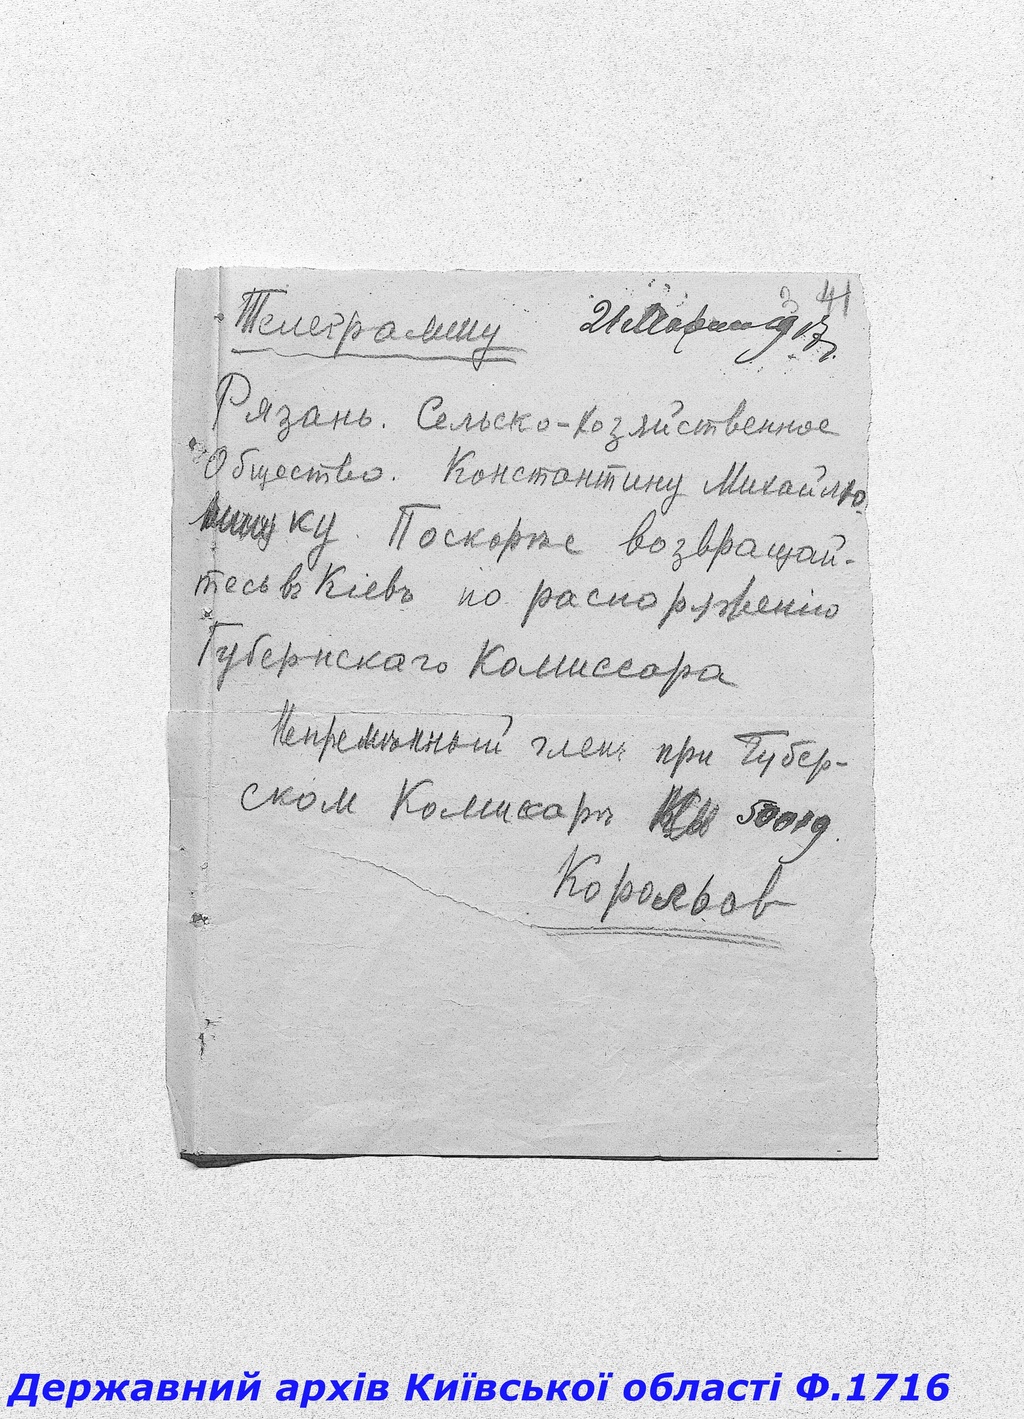 3 41
Телеграмму 21 Марта 1917 г.
Рязань. Сельско-хозяйственное
Общество. Константину Михайлю
ку. Поскорѣе возвращай-
тесь въ Кіевъ по распоряженію
Губернскаго Комиссара
Непремѣнный членъ при Губер-
ском Комисарѣ
Корольов
Державний архів Київської області Ф.1716